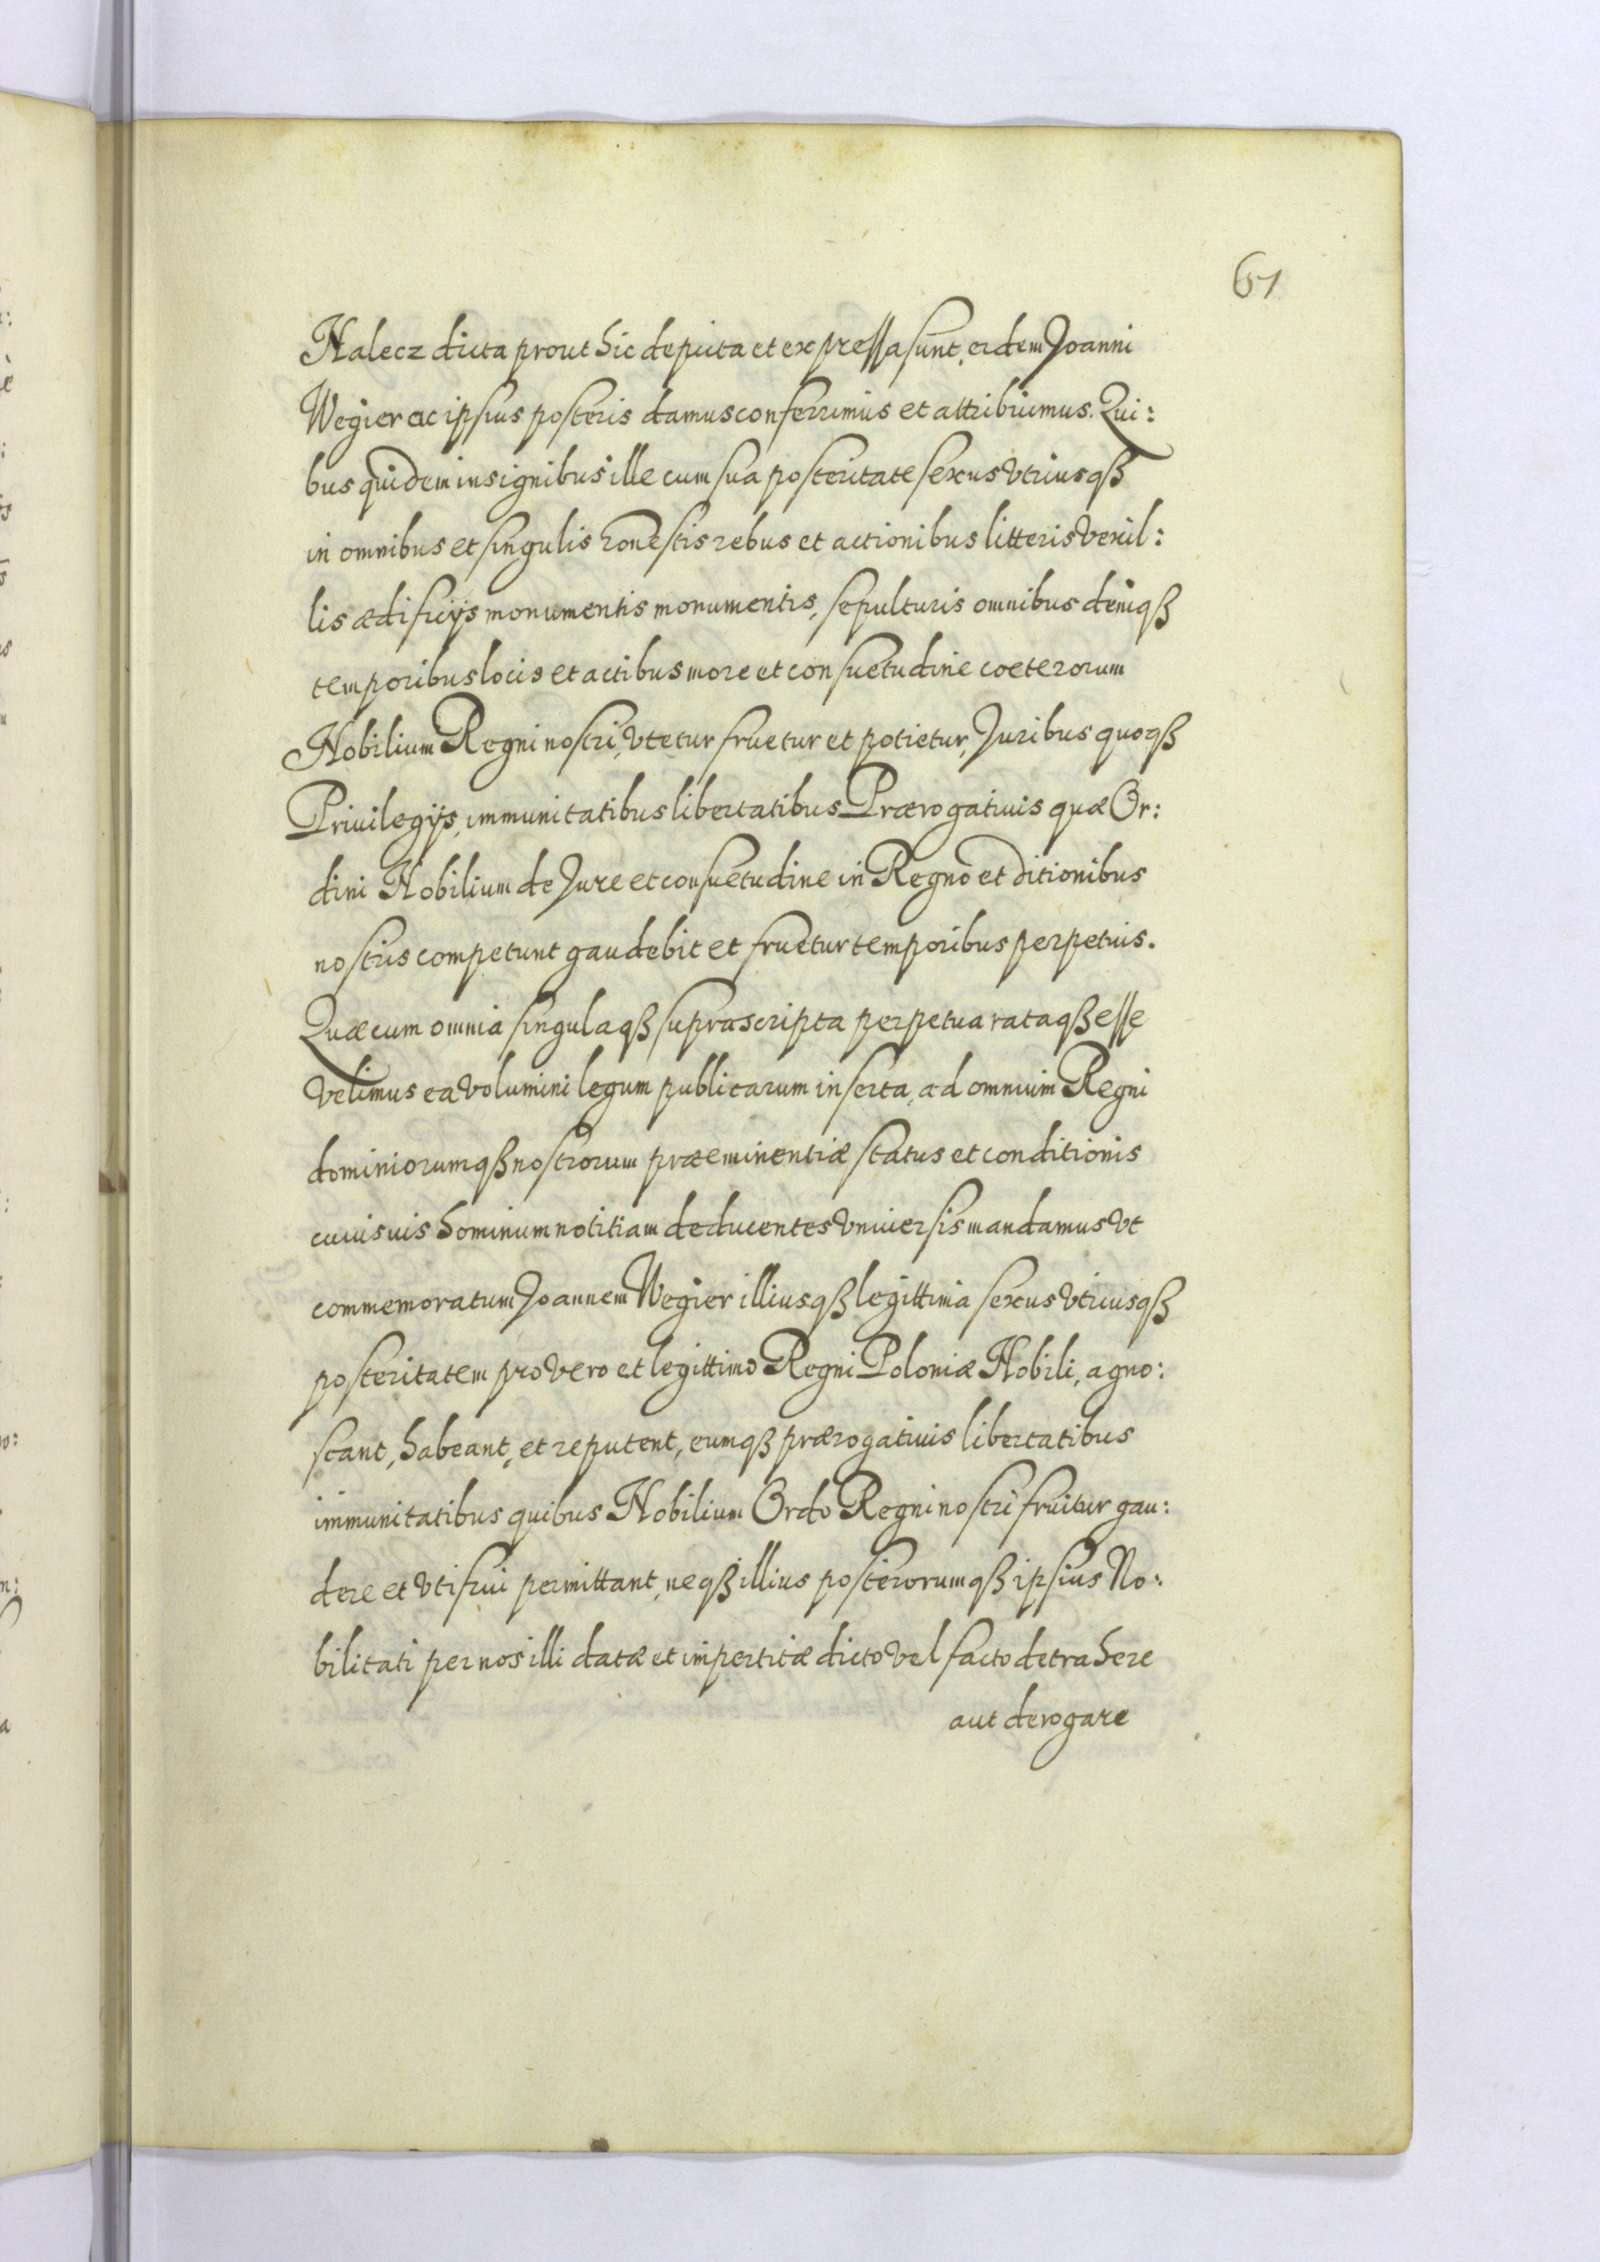 61
Nalecz dicta prout hic depicta et expressa sunt, eidem Joanni
Wegier ac ipsius posteris damus conferrimus et attribuimus. Qui:
bus quidem insignibus ille cum sua posteritate sexus vtriusqß
in omnibus et singulis honestis rebus et actionibus litteris vexil:
lis ædificijs monumentis monumentis, sepulturis omnibus deniqß
temporibus locis et actibus more et consuetudine coeterorum
Nobilium Regni nostri, vtetur fruetur et potietur, Juribus quoqß
Privilegijs, immunitatibus libertatibus Prærogativis quæ Or:
dini Nobilium de Jure et consuetudine in Regno et ditionibus
nostris competunt gaudebit et fruetur temporibus perpetuis.
Quæ cum omnia singulaqß suprascripta perpetua rataqß esse
velimus ea volumini legum publicarum inserta, ad omnium Regni
dominiorumqß nostrorum præeminentiæ status et conditionis
cuiusuis hominum notitiam deducentes vniuersis mandamus vt
commemoratum Joannem Wegier illiusqß legittima sexus vtriusqß
posteritatem pro vero et legittimo Regni Poloniæ Nobili, agno:
scant, habeant, et reputent, eumqß prærogativis libertatibus
immunitatibus quibus Nobilium Ordo Regni nostri fruitur gau:
dere et vti frui permittant, neqß illius posterorumqß ipsius No:
bilitati per nos illi datæ et impertitæ dicto vel facto detrahere
aut derogare